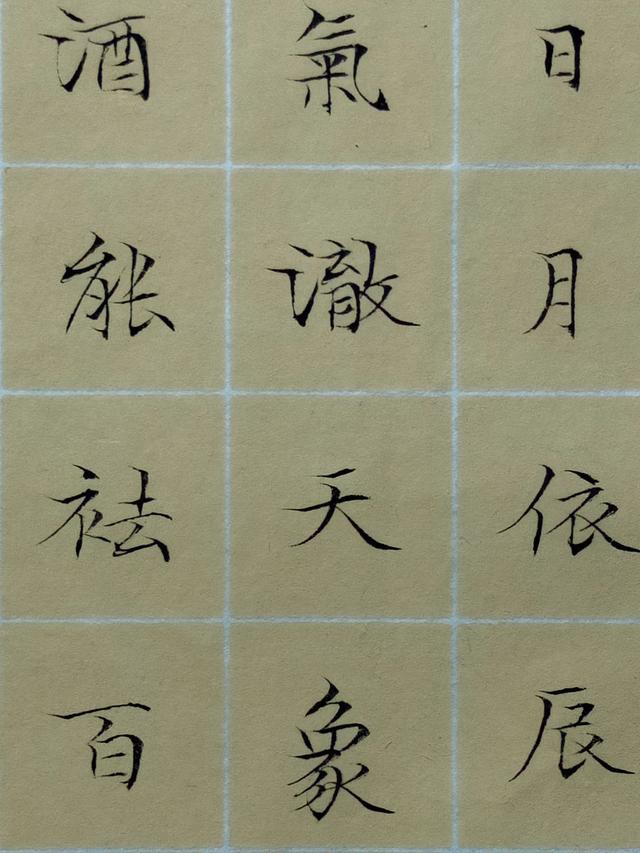 日月依辰
氣澈天象
酒能祛百